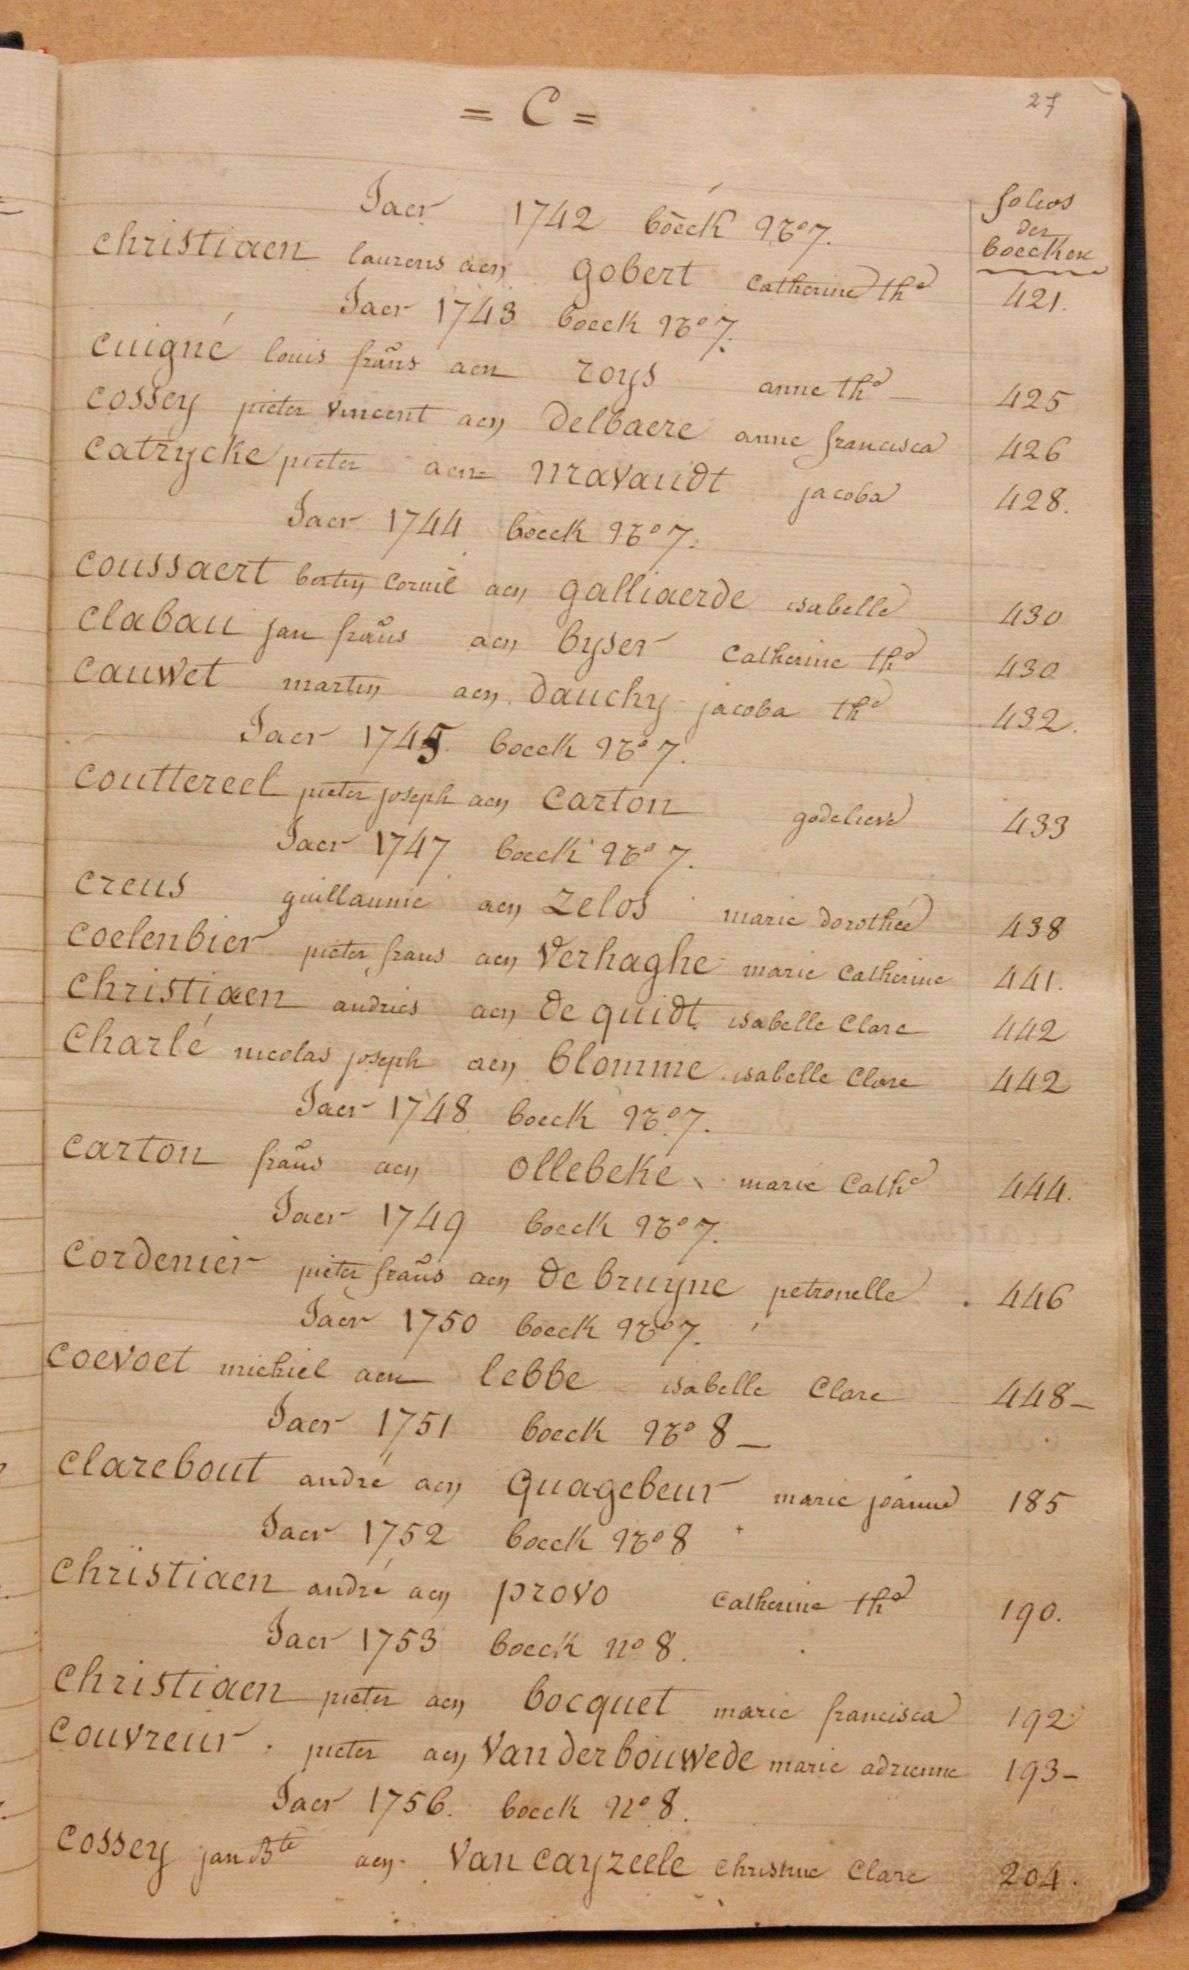 27
= C =
folios
der
boecken
Jaer 1742 boeck No 7.
christiaen laurens aen gobert catherine the 421.
Jaer 1743 boeck No 7.
cuigné louis frans aen roys anne the 425
cossey pieter vincent aen delbaere anne francisca 426
catrycke pieter aen mravaudt jacoba 428.
Jaer 1744 boeck No 7.
coussaert bertin cornil aen galliaerde isabelle 430
clabau jan frans aen byser catherine the 430
cauwet martin aen dauchy jacoba the 432.
Jaer 1745 boeck No 7.
couttereel pieter joseph aen carton godelieve 433
Jaer 1747 boeck No 7.
creus guillaume aen zelos marie dorothée 438
coelenbier pieter frans aen verhaghe marie catherine 441.
christiaen andries aen de quidt isabelle clare 442
charlé nicolas joseph aen blomme isabelle clare 442
Jaer 1748 boeck No 7.
carton frans aen ollebeke marie cathe 444.
Jaer 1749 boeck No 7.
cordenier pieter frans aen de bruyne petronelle 446
Jaer 1750 boeck No 7.
coevoet michiel aen lebbe isabelle clare 448 –
Jaer 1751 boeck No 8 –
clarebout andré aen quagebeur marie joanne 185
Jaer 1752 boeck No 8
christiaen andré aen provo catherine the 190.
Jaer 1753 boeck no 8.
christiaen pieter aen bocquet marie francisca 192
couvreur pieter aen vanderbouwede marie adrienne 193 –
Jaer 1756. boeck no 8.
cossey jan Bte aen van cayzeele christine clare 204.